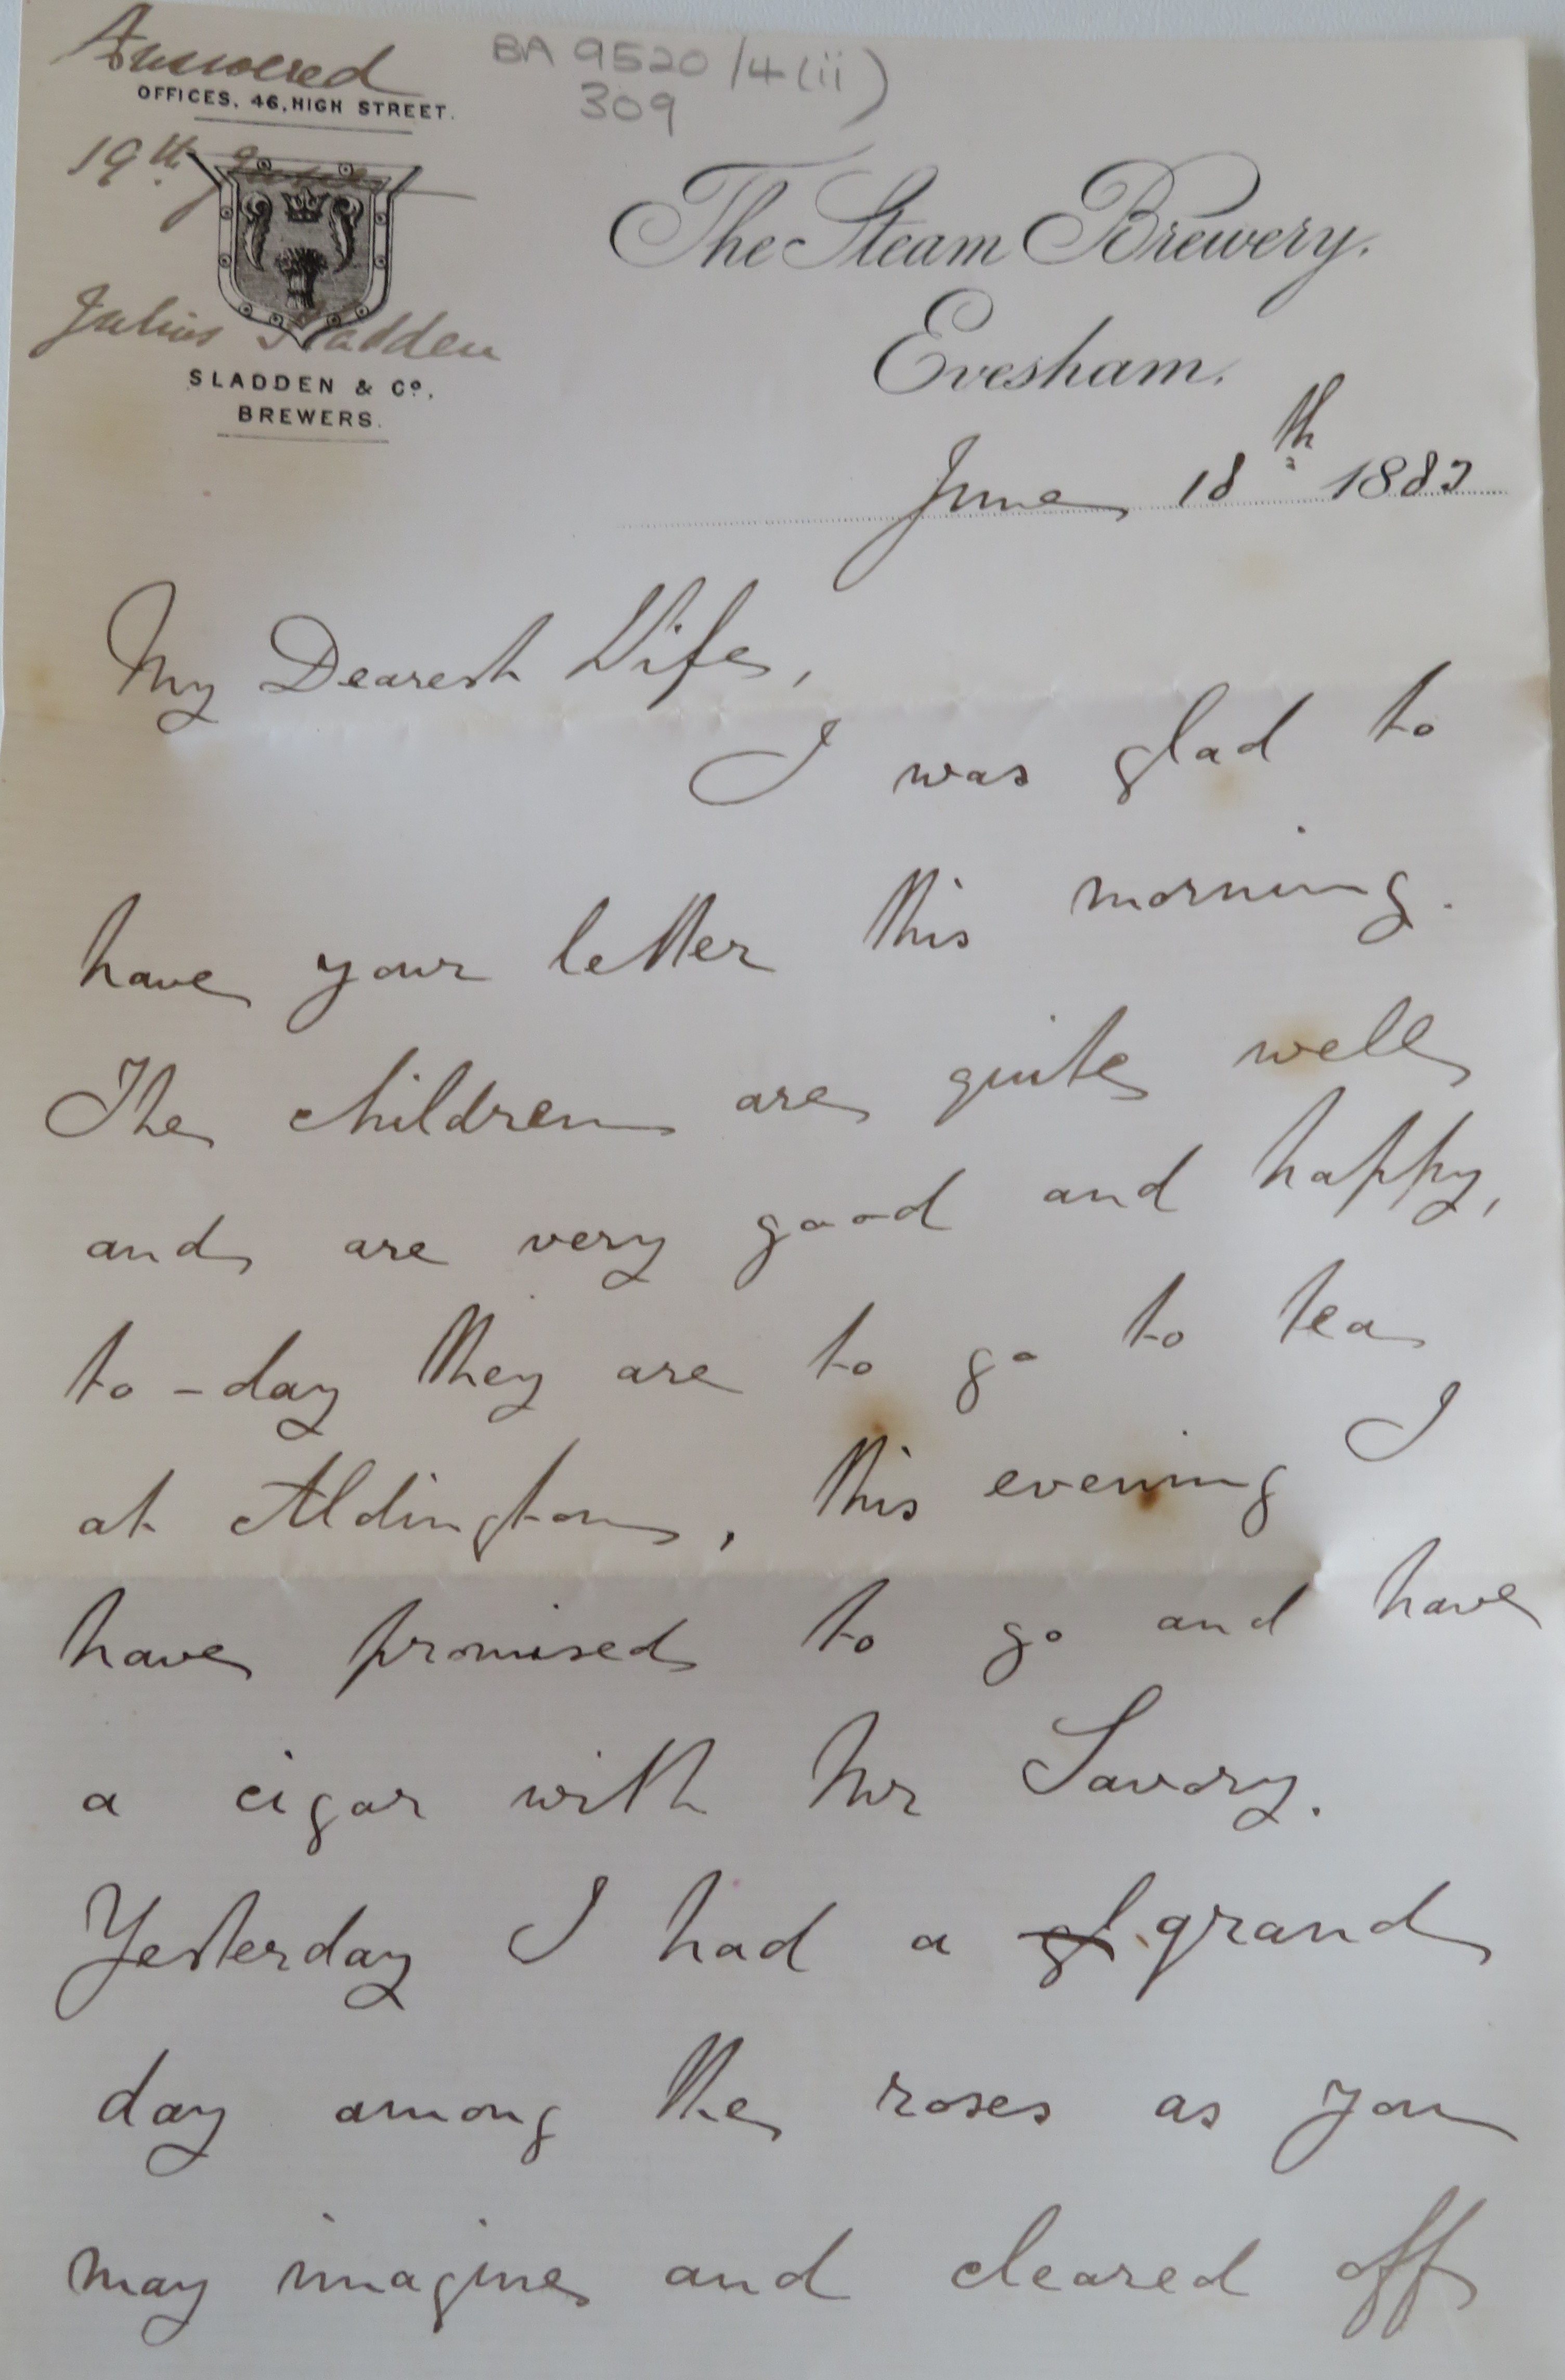 Answered
BA 9520/4(ii)
309
OFFICES, 46, HIGH STREET.
19th June
The Steam Brewery.
Evesham.
Julius Sladden
SLADDEN & Co.
BREWERS.
June 18th 1883
My Dearest Wife,
I was glad to
have your letter this morning.
The children are quite well
and are very good and happy,
to-day they are to go to tea
at Aldington, this evening I
have promised to go and have
a cigar with Mr Savory.
Yesterday I had a gl grand
day among the roses as you
may imagine and cleared off